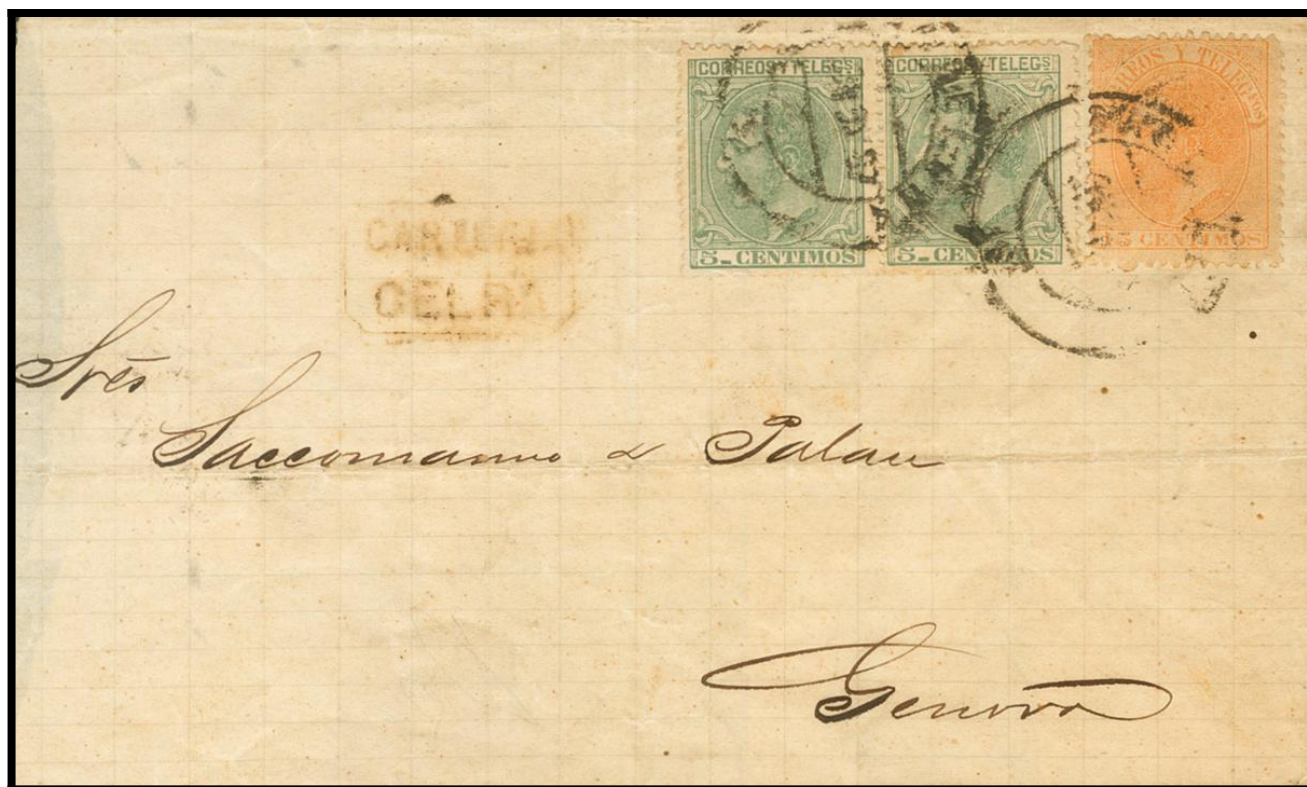 CORREOS Y TELEGS
5_ CENTIMOS
CORREOS Y TELEGS
5_ CENTIMOS
CORREOS Y TELEG
15 CENTIMOS
CARTERIA
CELRA
Sres
Saccomanno & Palau
Genova